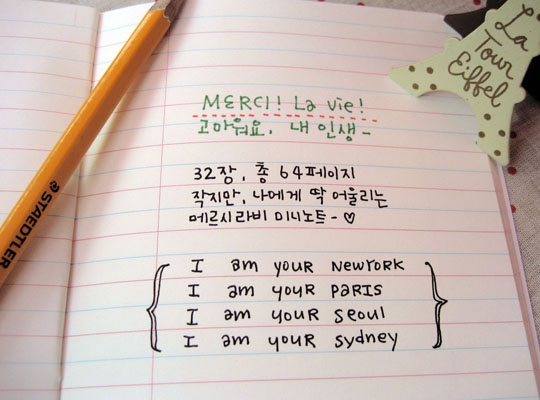 La
Tour
Eiffel
MERCI! La vie!
고마워요, 내 인생~
32장, 총 64페이지
작지만, 나에게 딱 어울리는
메르시라비 미니노트~♡
I am your NEWYORK
I am your PARIS
I am your Seoul
I am your Sydney
STAEDTLER